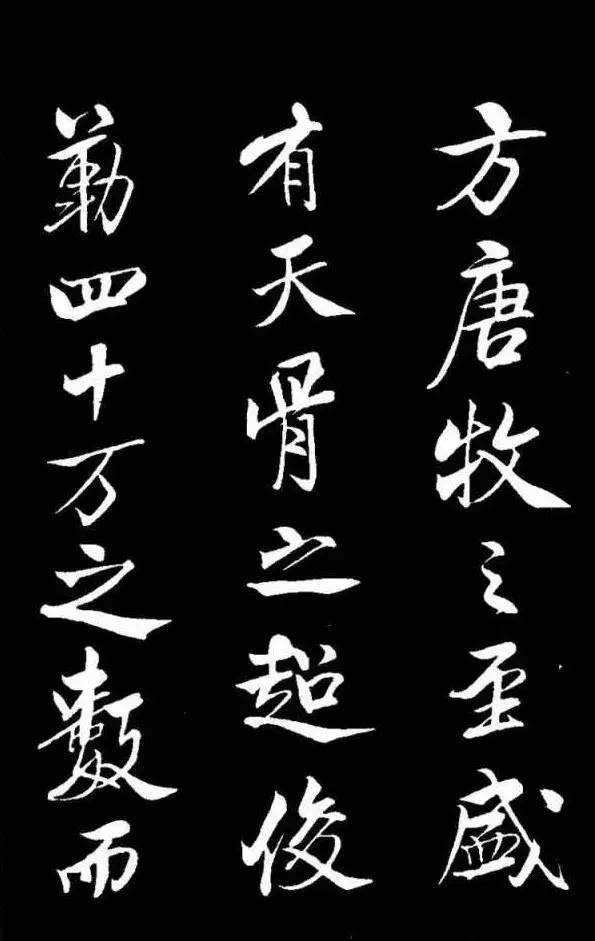 方唐牧之至盛
有天骨之超俊
勒四十万之數而